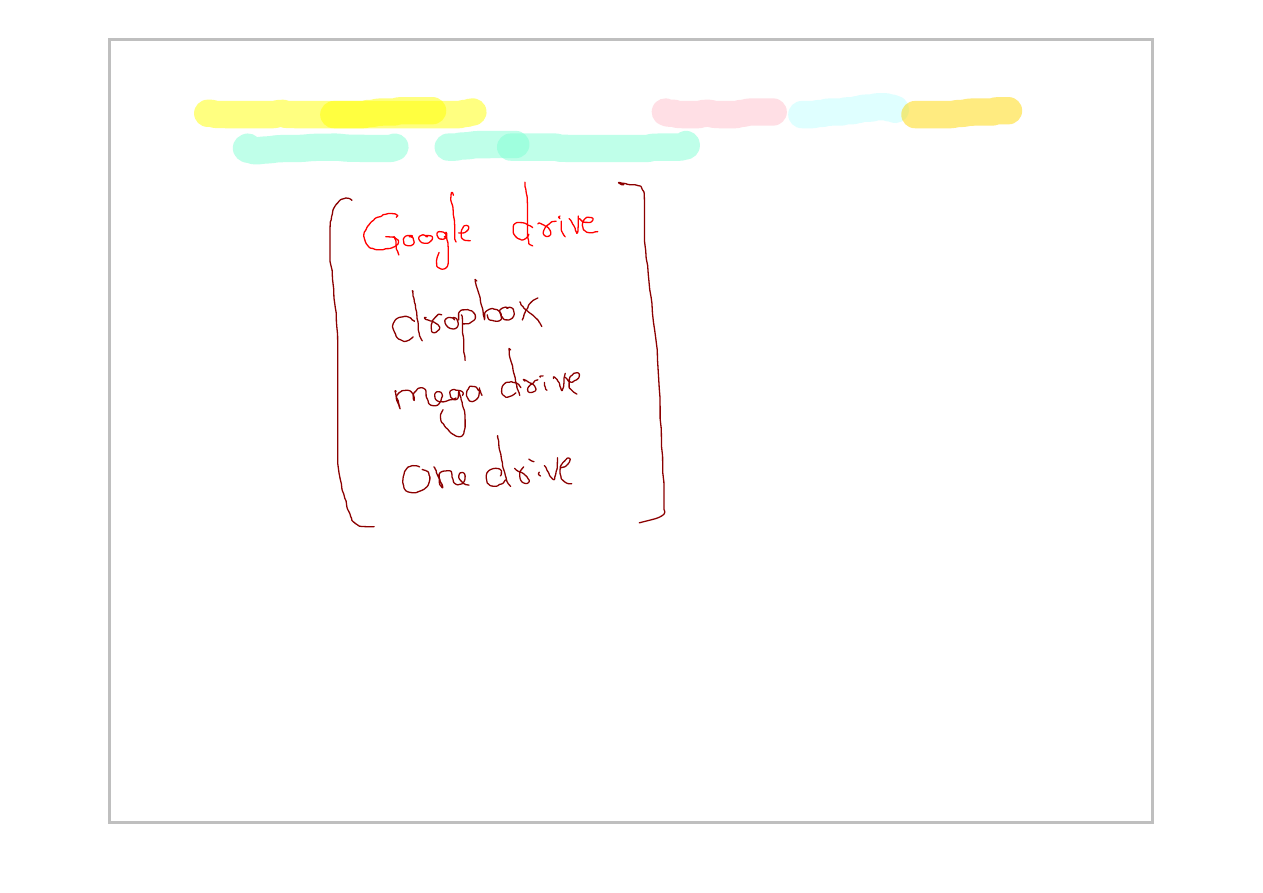 Google drive
dropbox
mega drive
one drive